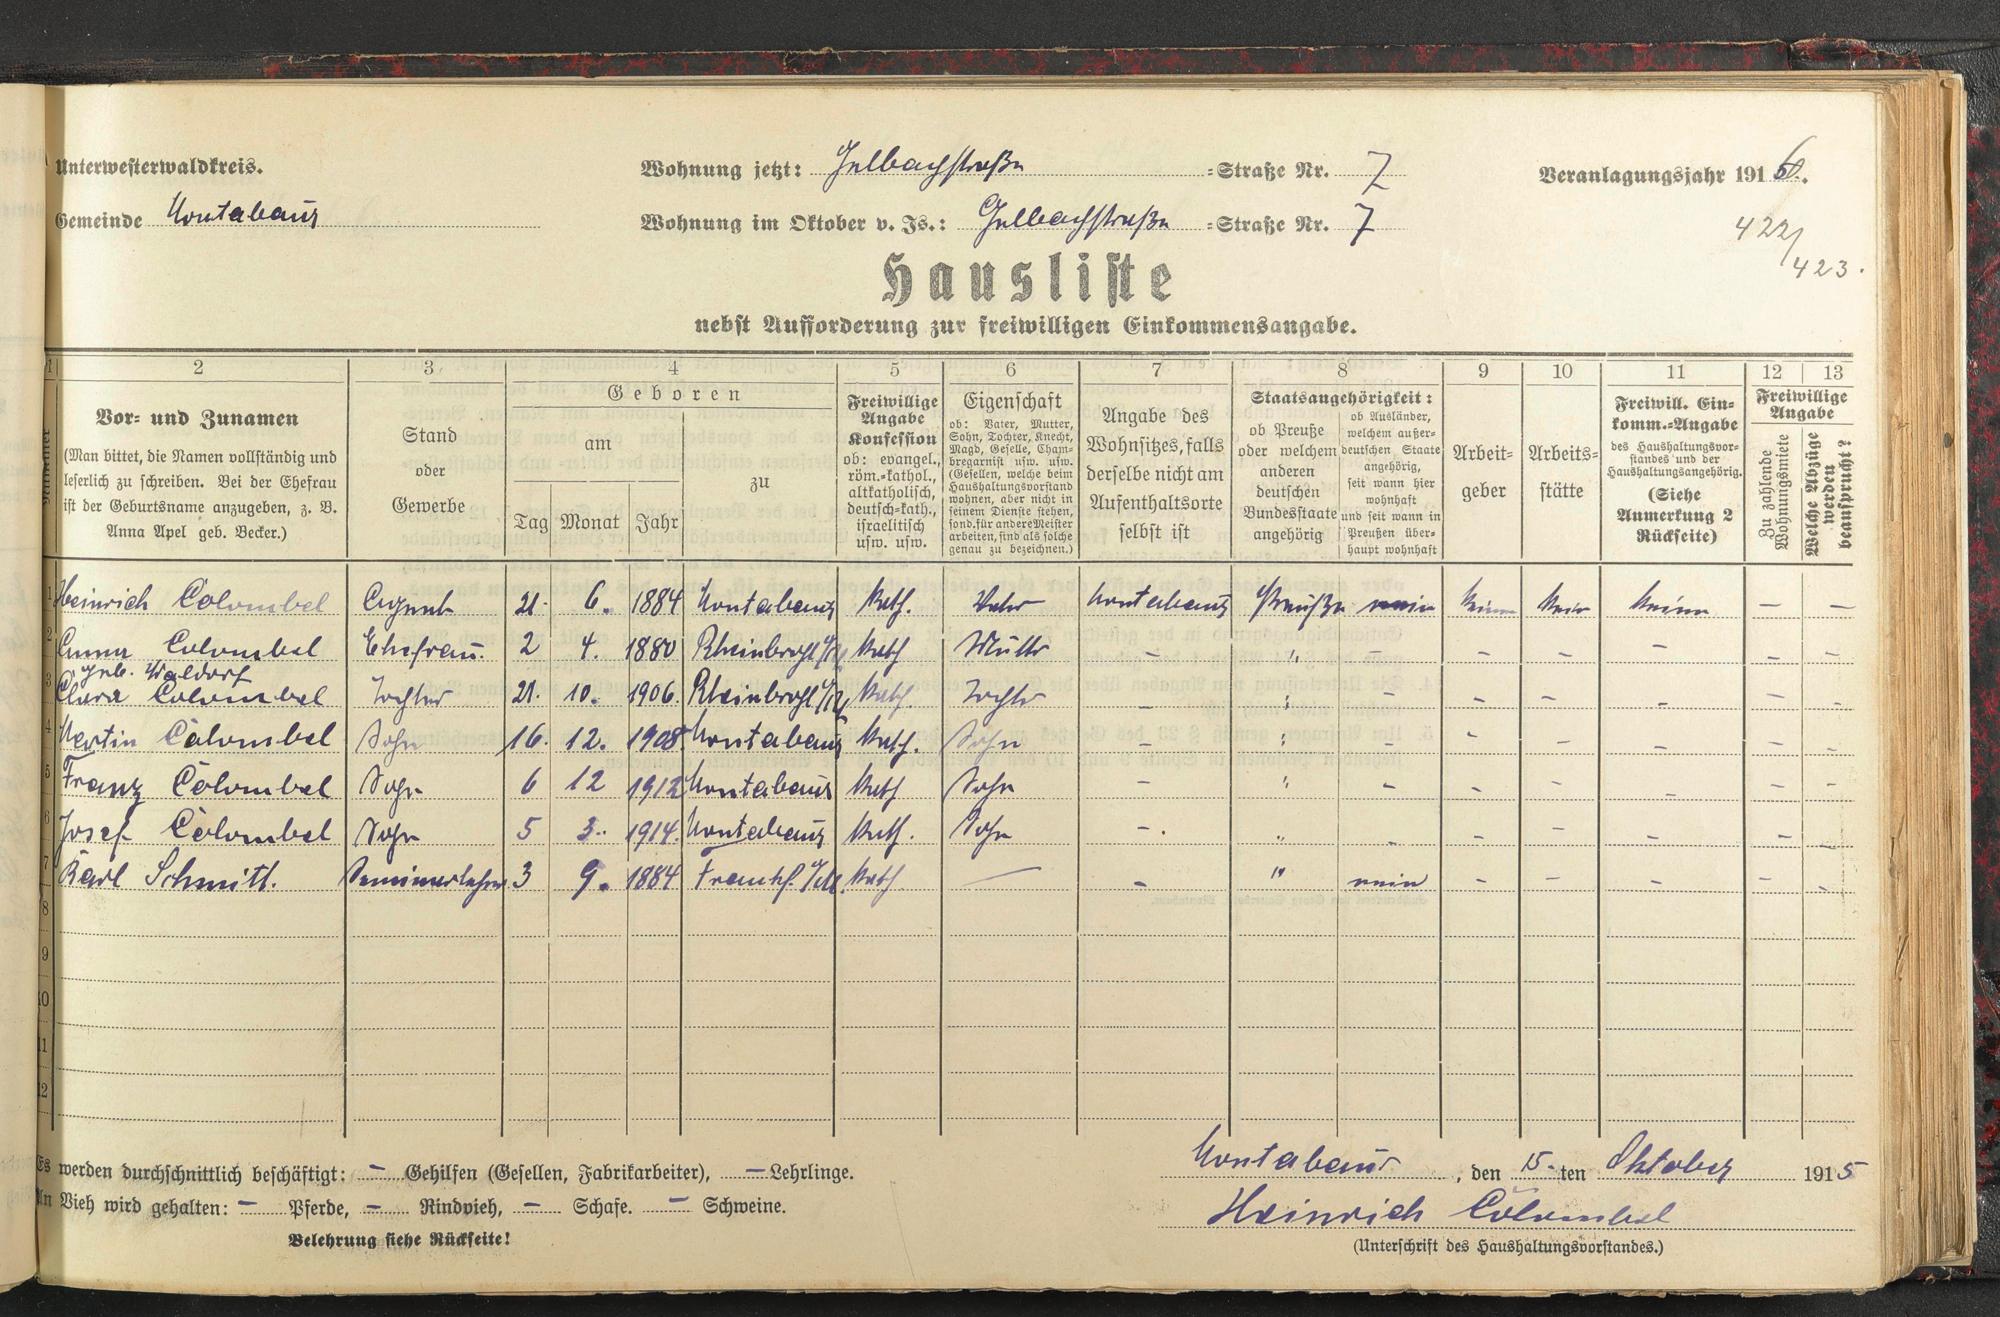 Unterwesterwaldkreis.
Wohnung jetzt: Gelbachstraße =Straße Nr. 7
Veranlagungsjahr 1916.
Gemeinde Montabaur
Wohnung im Oktober v. Js.: Gelbachstraße =Straße Nr. 7
422/
423.
Hausliste
nebst Aufforderung zur freiwilligen Einkommensangabe.
1 2 3 4 5 6 7 8 9 10 11 12 13
Vor- und Zunamen
(Man bittet, die Namen vollständig und
leserlich zu schreiben. Bei der Ehefrau
ist der Geburtsname anzugeben, z. B.
Anna Apel geb. Becker.)
Stand
oder
Gewerbe
Geboren
am
zu
Tag Monat Jahr
Freiwillige
Angabe
Konfession
ob: evangel.,
röm.-kathol.,
altkatholisch,
deutsch-kath.,
israelitisch
usw. usw.
Eigenschaft
ob: Vater, Mutter,
Sohn, Tochter, Knecht,
Magd, Geselle, Cham-
bregarnist usw. usw.
(Gesellen, welche beim
Haushaltungsvorstand
wohnen, aber nicht in
seinem Dienste stehen,
sond. für andere Meister
arbeiten, sind als solche
genau zu bezeichnen.)
Angabe des
Wohnsitzes, falls
derselbe nicht am
Aufenthaltsorte
selbst ist
Staatsangehörigkeit:
ob Preuße
oder welchem
anderen
deutschen
Bundesstaate
angehörig
ob Ausländer,
welchem außer-
deutschen Staate
angehörig,
seit wann hier
wohnhaft
und seit wann in
Preußen über-
haupt wohnhaft
Arbeit-
geber
Arbeits-
stätte
Freiwill. Ein-
komm.-Angabe
des Haushaltungsvor-
standes und der
Haushaltungsangehörig.
(Siehe
Anmerkung 2
Rückseite)
Freiwillige
Angabe
Zu zahlende
Wohnungsmiete
Welche Abzüge
werden
beansprucht?
1 Heinrich Colombel Agent 21. 6. 1884 Montabaur kath. Vater Montabaur Preuße nein keinen kein keine — —
2 Anna Colombel Ehefrau. 2 4. 1880 Rheinbrohl a/Rh kath Mutter — " — — — — — —
geb. Waldorf
3 Clara Colombel Tochter 21. 10. 1906. Rheinbrohl a/Rh kath. Tochter — " — — — — — —
4 Martin Colombel Sohn 16. 12. 1908 Montabaur kath. Sohn — " — — — — — —
5 Franz Colombel Sohn 6 12 1912 Montabaur kath Sohn — " — — — — — —
6 Josef Colombel Sohn 5 3. 1914. Montabaur kath. Sohn — " — — — — — —
7 Karl Schmitt. Seminarlehrer 3 9. 1884 Frankf. a/M. kath — — " nein — — — — —
8
9
10
11
12
Es werden durchschnittlich beschäftigt: — Gehilfen (Gesellen, Fabrikarbeiter), — Lehrlinge.
An Vieh wird gehalten: — Pferde, — Rindvieh, — Schafe. — Schweine.
Belehrung siehe Rückseite!
Montabaur, den 15. ten Oktober 1915
Heinrich Colombel
(Unterschrift des Haushaltungsvorstandes.)